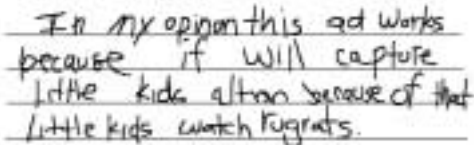 In my opinon this ad works
because if will capture
little kids altran because of that
little kids watch rugrats.